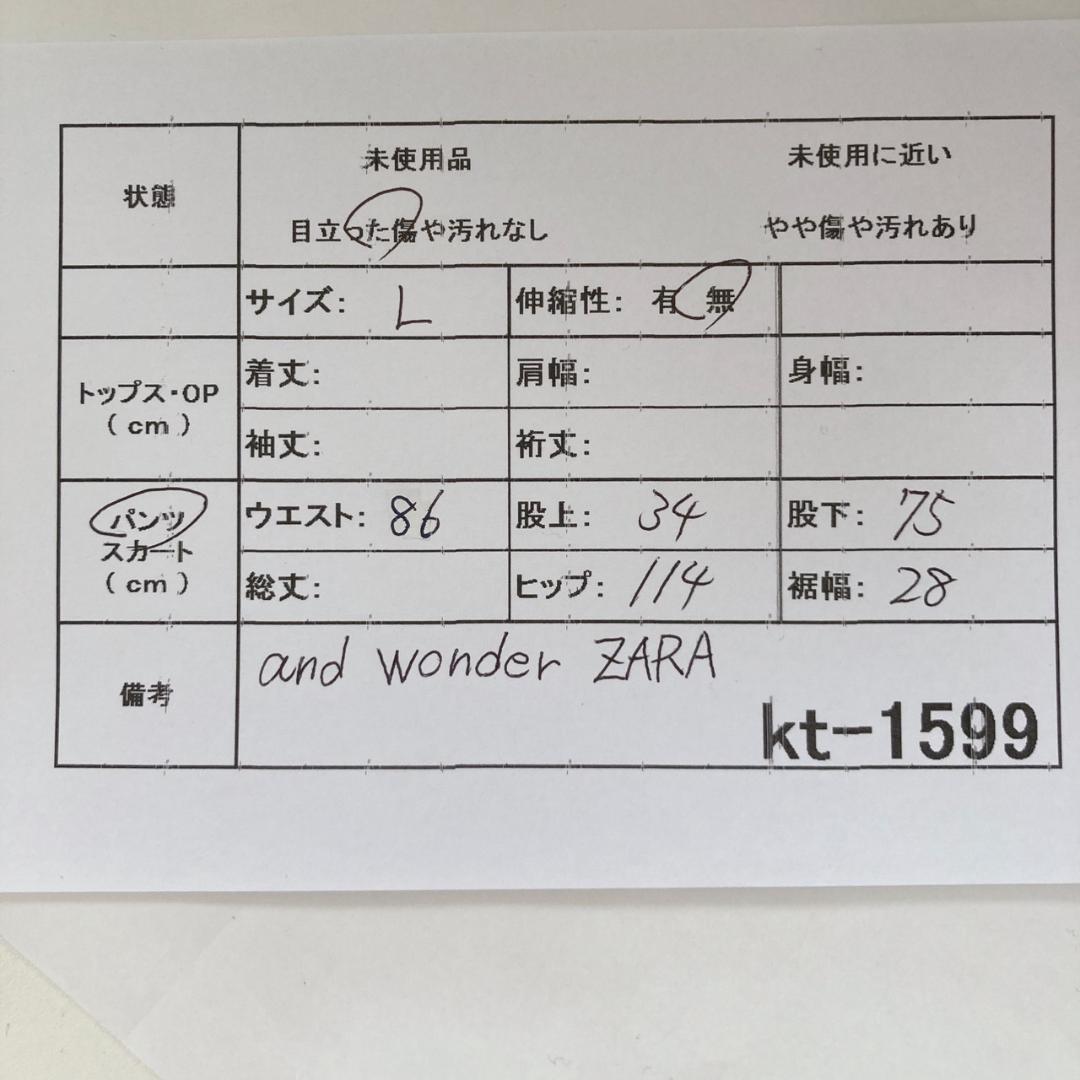 状態 未使用品 未使用に近い
目立った傷や汚れなし やや傷や汚れあり
サイズ: L 伸縮性: 有 無
トップス・OP
(cm)
着丈: 肩幅: 身幅:
袖丈: 裄丈:
パンツ
スカート
(cm)
ウエスト: 86 股上: 34 股下: 75
総丈: ヒップ: 114 裾幅: 28
備考 and wonder ZARA
kt-1599